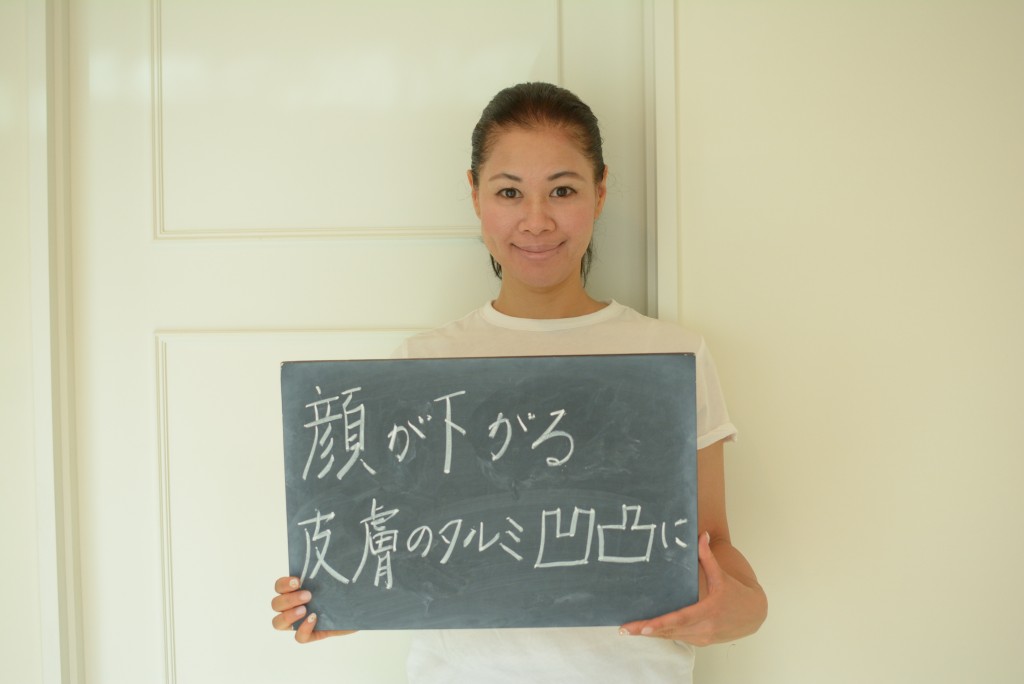 顔が下がる
皮膚のタルミ凹凸に